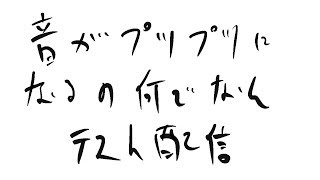 音がプツプツに
なるの何でなん
テスト配信